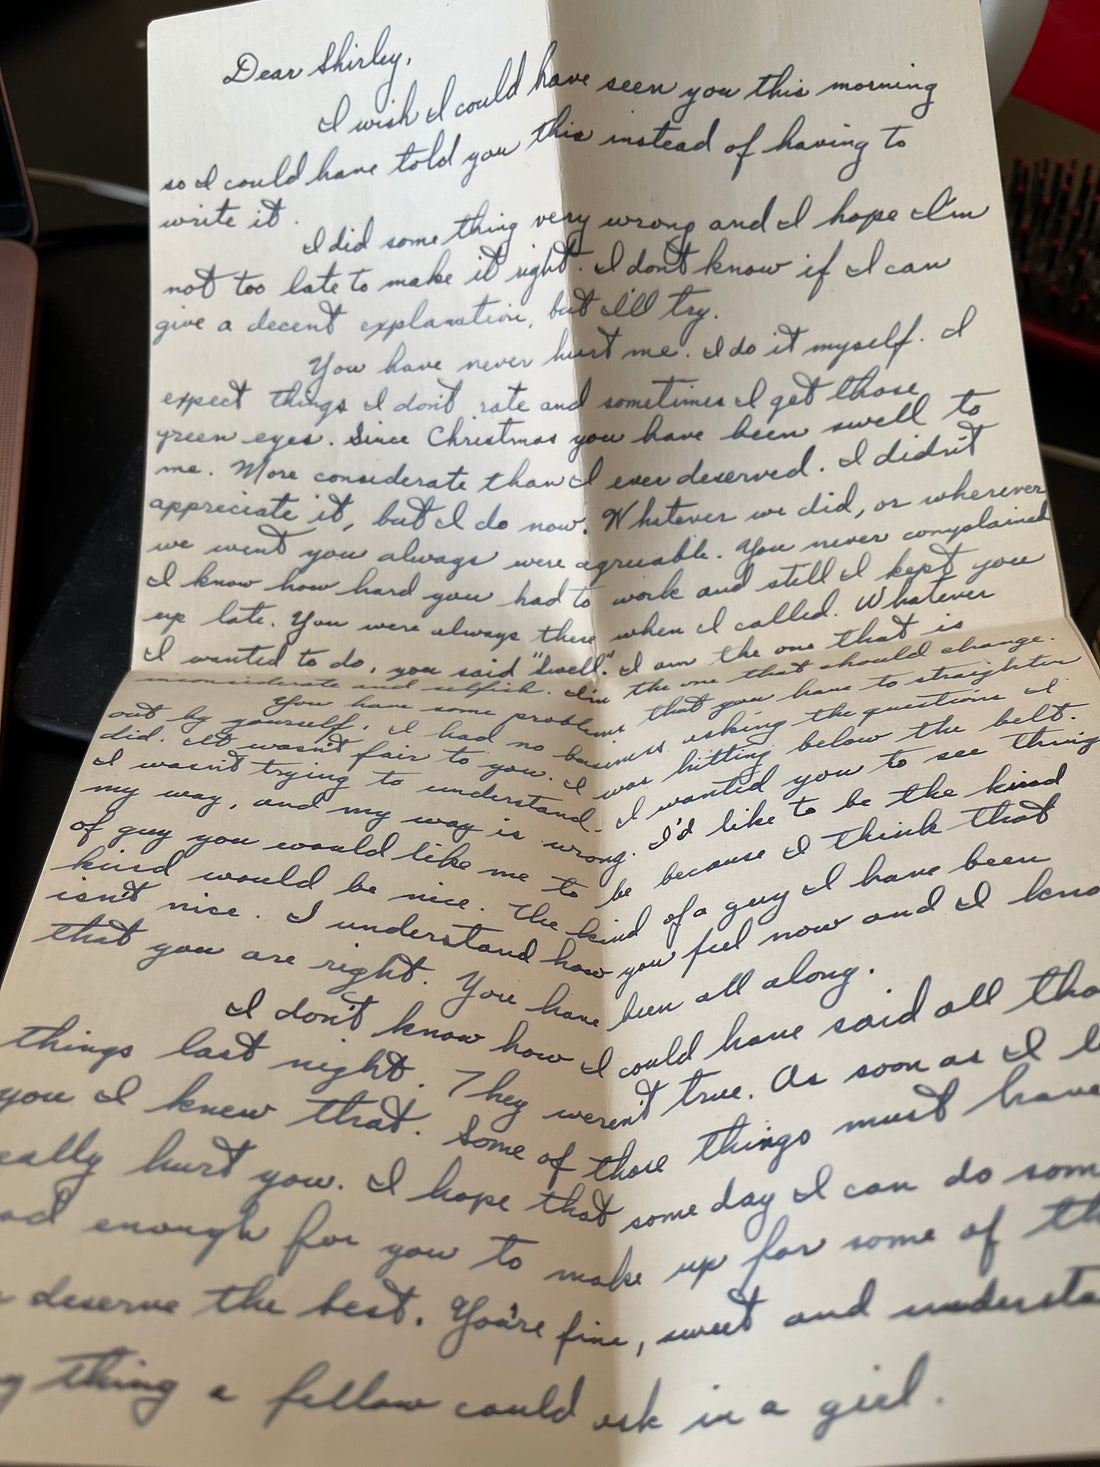 Dear Shirley,
I wish I could have seen you this morning
so I could have told you this instead of having to
write it.
I did something very wrong and I hope I'm
not too late to make it right. I don't know if I can
give a decent explanation, but I'll try.
You have never hurt me. I do it myself. I
expect things I don't rate and sometimes I get those
green eyes. Since Christmas you have been swell to
me. More considerate than I ever deserved. I didn't
appreciate it, but I do now. Whatever we did, or wherever
we went you always were agreeable. You never complained
I know how hard you had to work and still I kept you
up late. You were always there when I called. Whatever
I wanted to do, you said "swell." I am the one that is
inconsiderate and selfish. I'm the one that should change.
You have some problems that you have to straighten
out by yourself. I had no business asking the questions I
did. It wasn't fair to you. I was hitting below the belt.
I wasn't trying to understand. I wanted you to see things
my way, and my way is wrong. I'd like to be the kind
of guy you would like me to be because I think that
kind would be nice. The kind of a guy I have been
isn't nice. I understand how you feel now and I kno
that you are right. You have been all along.
I don't know how I could have said all tho
things last night. They weren't true. As soon as I l
you I knew that. Some of those things must have
eally hurt you. I hope that some day I can do som
enough for you to make up for some of th
deserve the best. You're fine, sweet and understa
thing a fellow could ask in a girl.